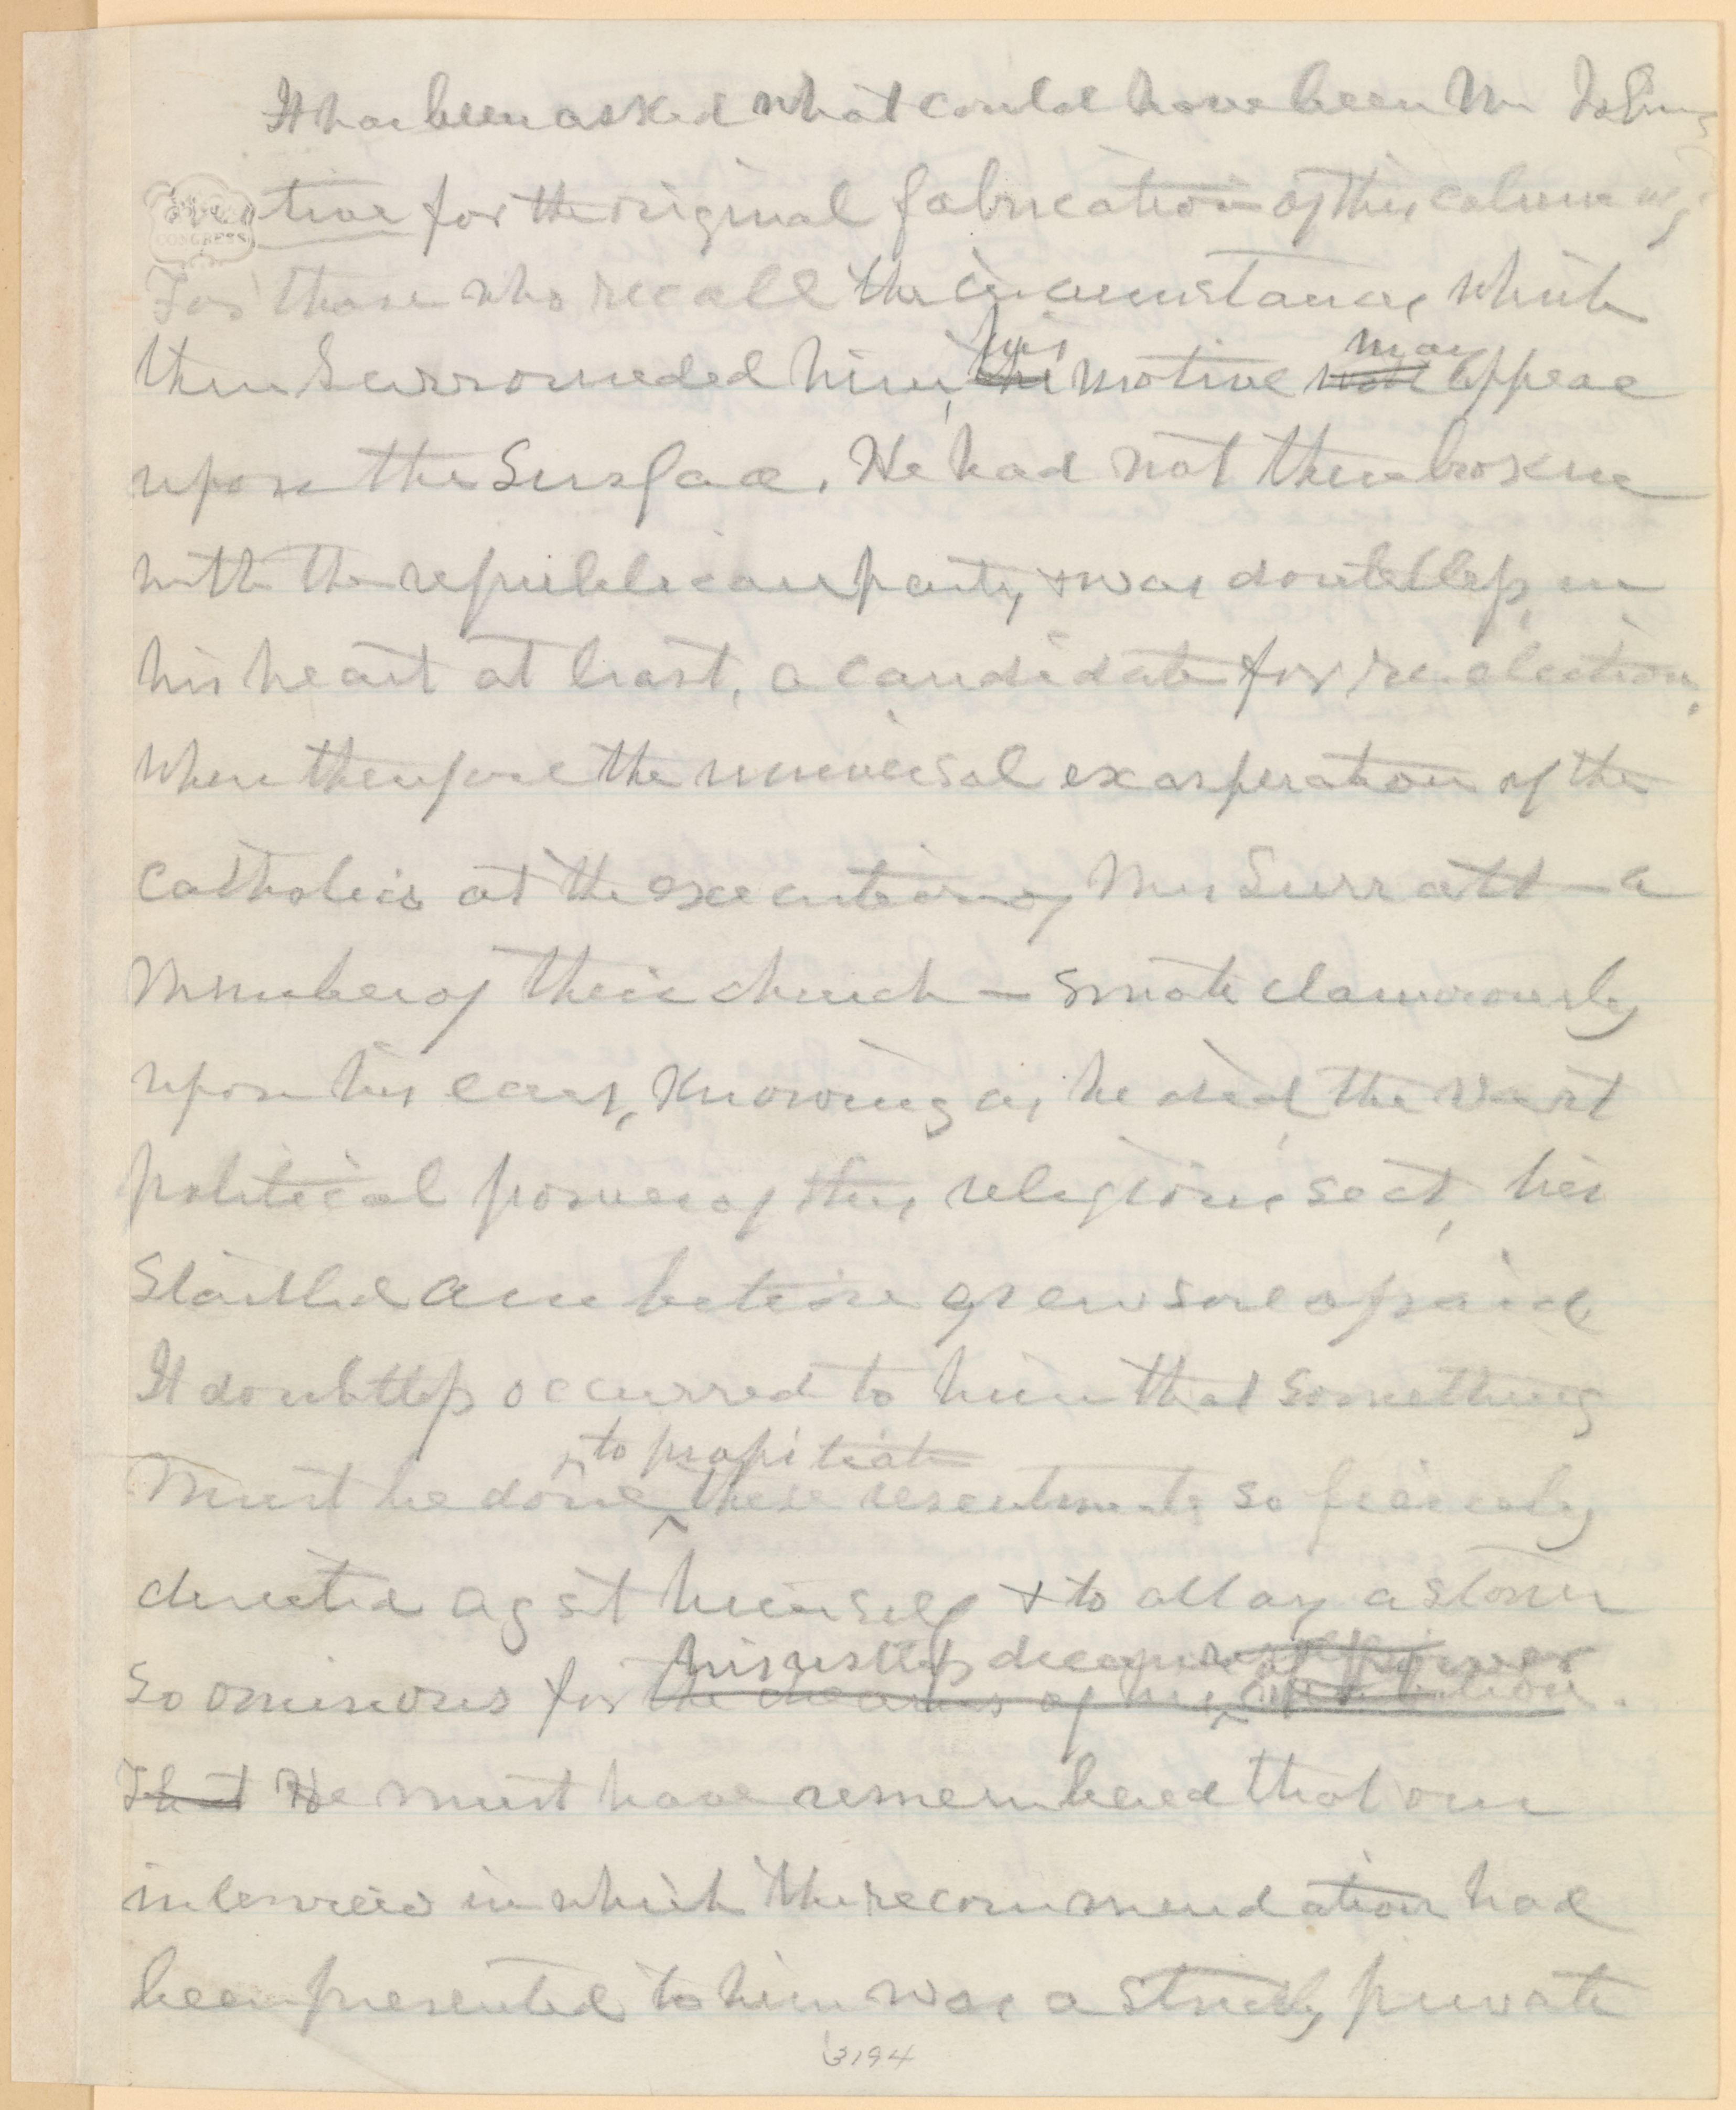 It has been asked what could have been Mr Johnson's
motive for the original fabrication of this calumny?
For those who recall the circumstances which
then surrounded him, ~~the~~ his motive ~~will~~ may appear
upon the surface. He had not then broken
with the republican party, & was doubtless, in
his heart at least, a candidate for re-election.
When therefore the universal exasperation of the
Catholics at the execution of Mrs Surratt — a
member of their church — smote clamorously
upon his ears, knowing as he did, the vast
political power of this religious sect, his
startled ambition grew sore afraid
It doubtless occurred to him that something
must be done ^ to propitiate these resentments so fiercely
directed agst himself & to allay a storm
so ominous for ~~the dreams of his ambition~~ his restless dreams ~~of power~~.
~~That~~ He must have remembered that our
interview in which the recommendation had
been presented to him was a strictly private
3194
CONGRESS